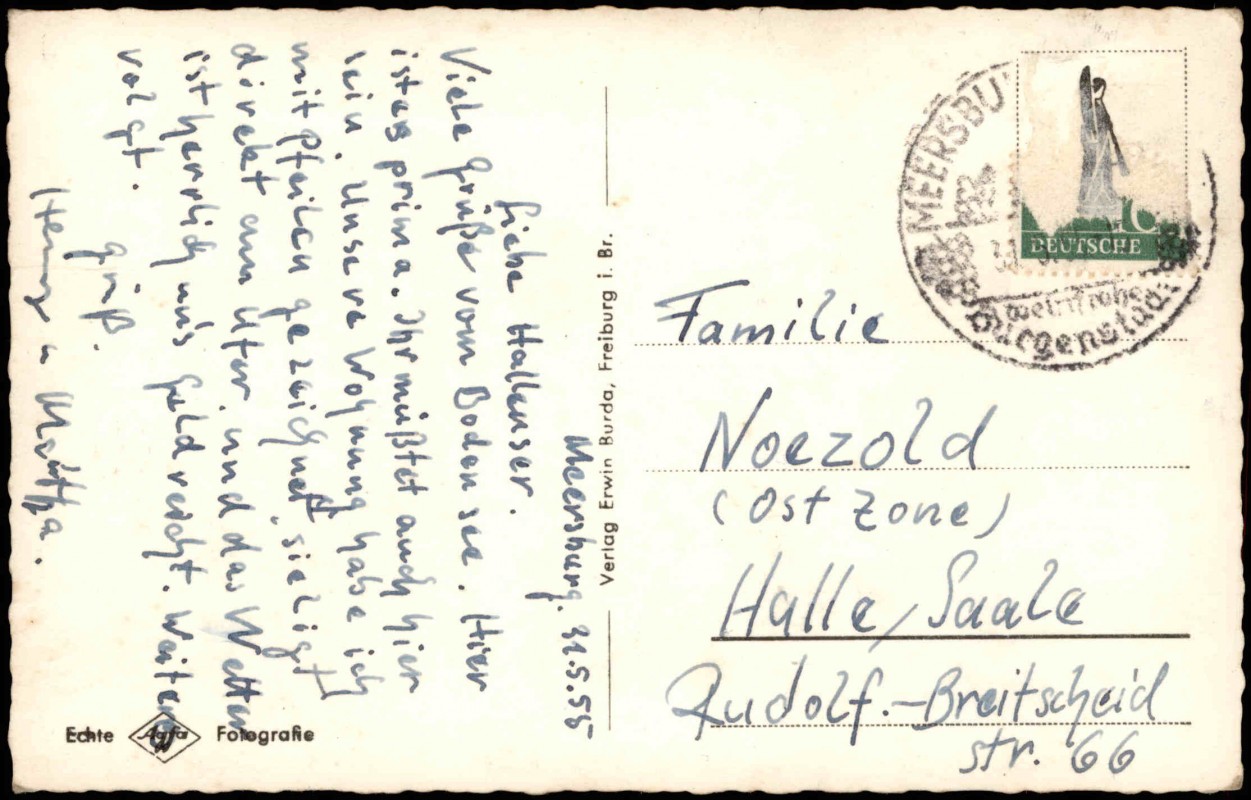 Meersburg. 31.5.55
Liebe Hallenser.
Viele Grüße vom Bodensee. Hier
ist es prima. Ihr müßtet auch hier
sein. Unsere Wohnung habe ich
mit Pfeilen gezeichnet, sie ligt
direkt am Ufer, und das Wetter
ist herrlich, unser Geld reicht. Weiteres
volgt.
Gruß.
u Martha.
Verlag Erwin Burda, Freiburg i. Br.
Echte Agfa Fotografie
MEERSBU
DEUTSCHE
Familie
Noezold
(Ost Zone)
Halle/Saale
Rudolf.-Breitscheid
str. 66